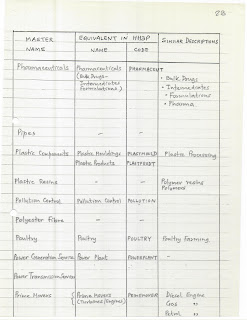 28
MASTER NAME EQUIVALENT IN HHBP SIMILAR DESCRIPTIONS
NAME CODE
Pharmaceuticals Pharmaceuticals PHARMACEUT
(Bulk Drugs - • Bulk Drugs
Intermediates • Intermediates
Formulations) • Formulations
• Pharma
Pipes - -
Plastic Components Plastic Mouldings Plastic Processing
Plastic Products
Plastic Resins - - Polymer resins
Polymers
Pollution Control Pollution Control POLLUTION
Polyester Fibre - -
Poultry Poultry POULTRY Poultry Farming
Power Generation Power Plant POWERPLANT -
Power Transmission
Prime Movers Prime Movers PRIMEMOVER Diesel Engine
(Turbines/Engines) Gas "
Petrol "